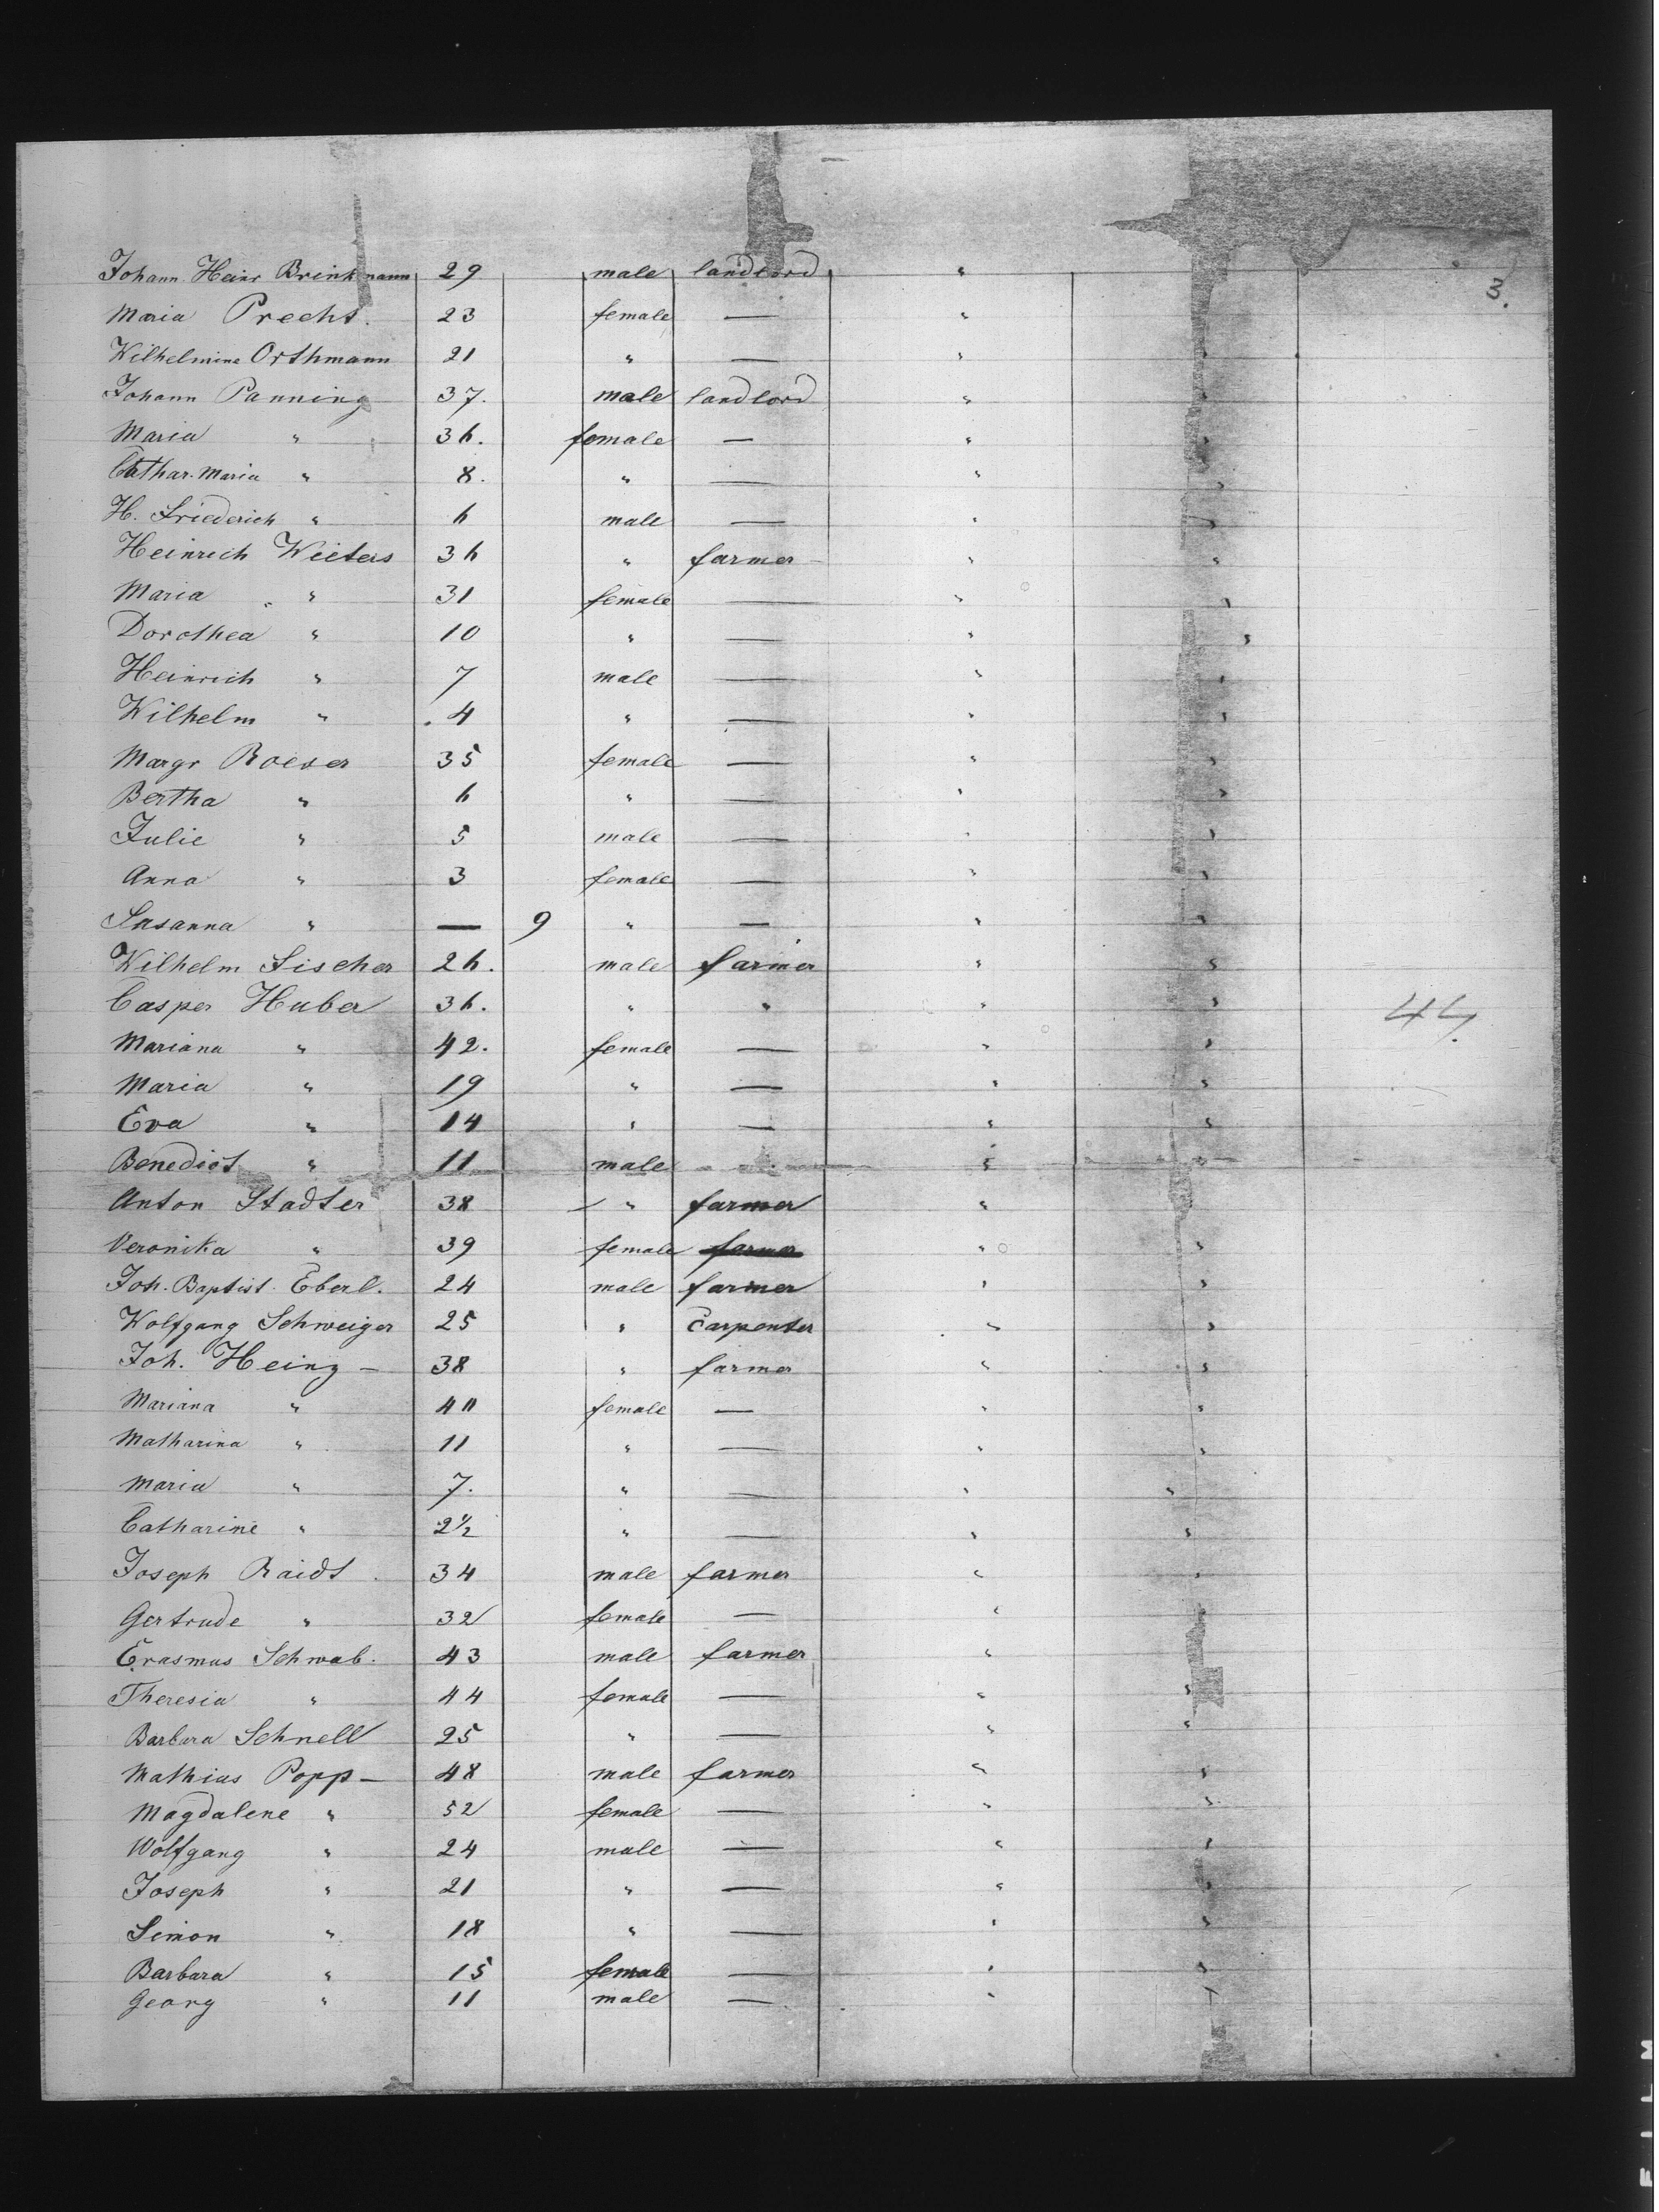 Johann Heinr Brinkmann 29 male landlord "
3.
Maria Precht. 23 female — "
Wilhelmine Orthmann 21 " — " "
Johann Panning 37. male landlord " "
Maria " 36. female — " "
Cathar. Maria " 8. " — " "
H. Friederich " 6 male — " "
Heinrich Wieters 36 " farmer " "
Maria " 31 female — " "
Dorothea " 10 " — " "
Heinrich " 7 male — " "
Wilhelm " 4 " — " "
Margr Roeser 35 female — " "
Bertha " 6 " — " "
Julie " 5 male — " "
Anna " 3 female — " "
Susanna " — 9 " — " "
Wilhelm Fischer 26. male farmer " "
Casper Huber 36. " " " "
44.
Mariana " 42. female — " "
Maria " 19 " — " "
Eva " 14 " — " "
Benedict " 11 male " "
Anton Stadter 38 " farmer "
Veronika " 39 female farmer " "
Joh. Baptist Eberl. 24 male farmer " "
Wolfgang Schweiger 25 " Carpenter " "
Joh. Heinz — 38 " farmer " "
Mariana " 40 female — " "
Matharina " 11 " — " "
Maria " 7. " — " "
Catharine " 2½ " — " "
Joseph Raidt. 34 male farmer " "
Gertrude " 32 female — "
Erasmus Schwab. 43 male farmer "
Theresia " 44 female — " "
Barbara Schnell 25 " — " "
Mathias Popp — 48 male farmer " "
Magdalene " 52 female — " "
Wolfgang " 24 male — " "
Joseph " 21 " — " "
Simon " 18 " — " "
Barbara " 15 female — " "
Georg " 11 male — " "
FILM